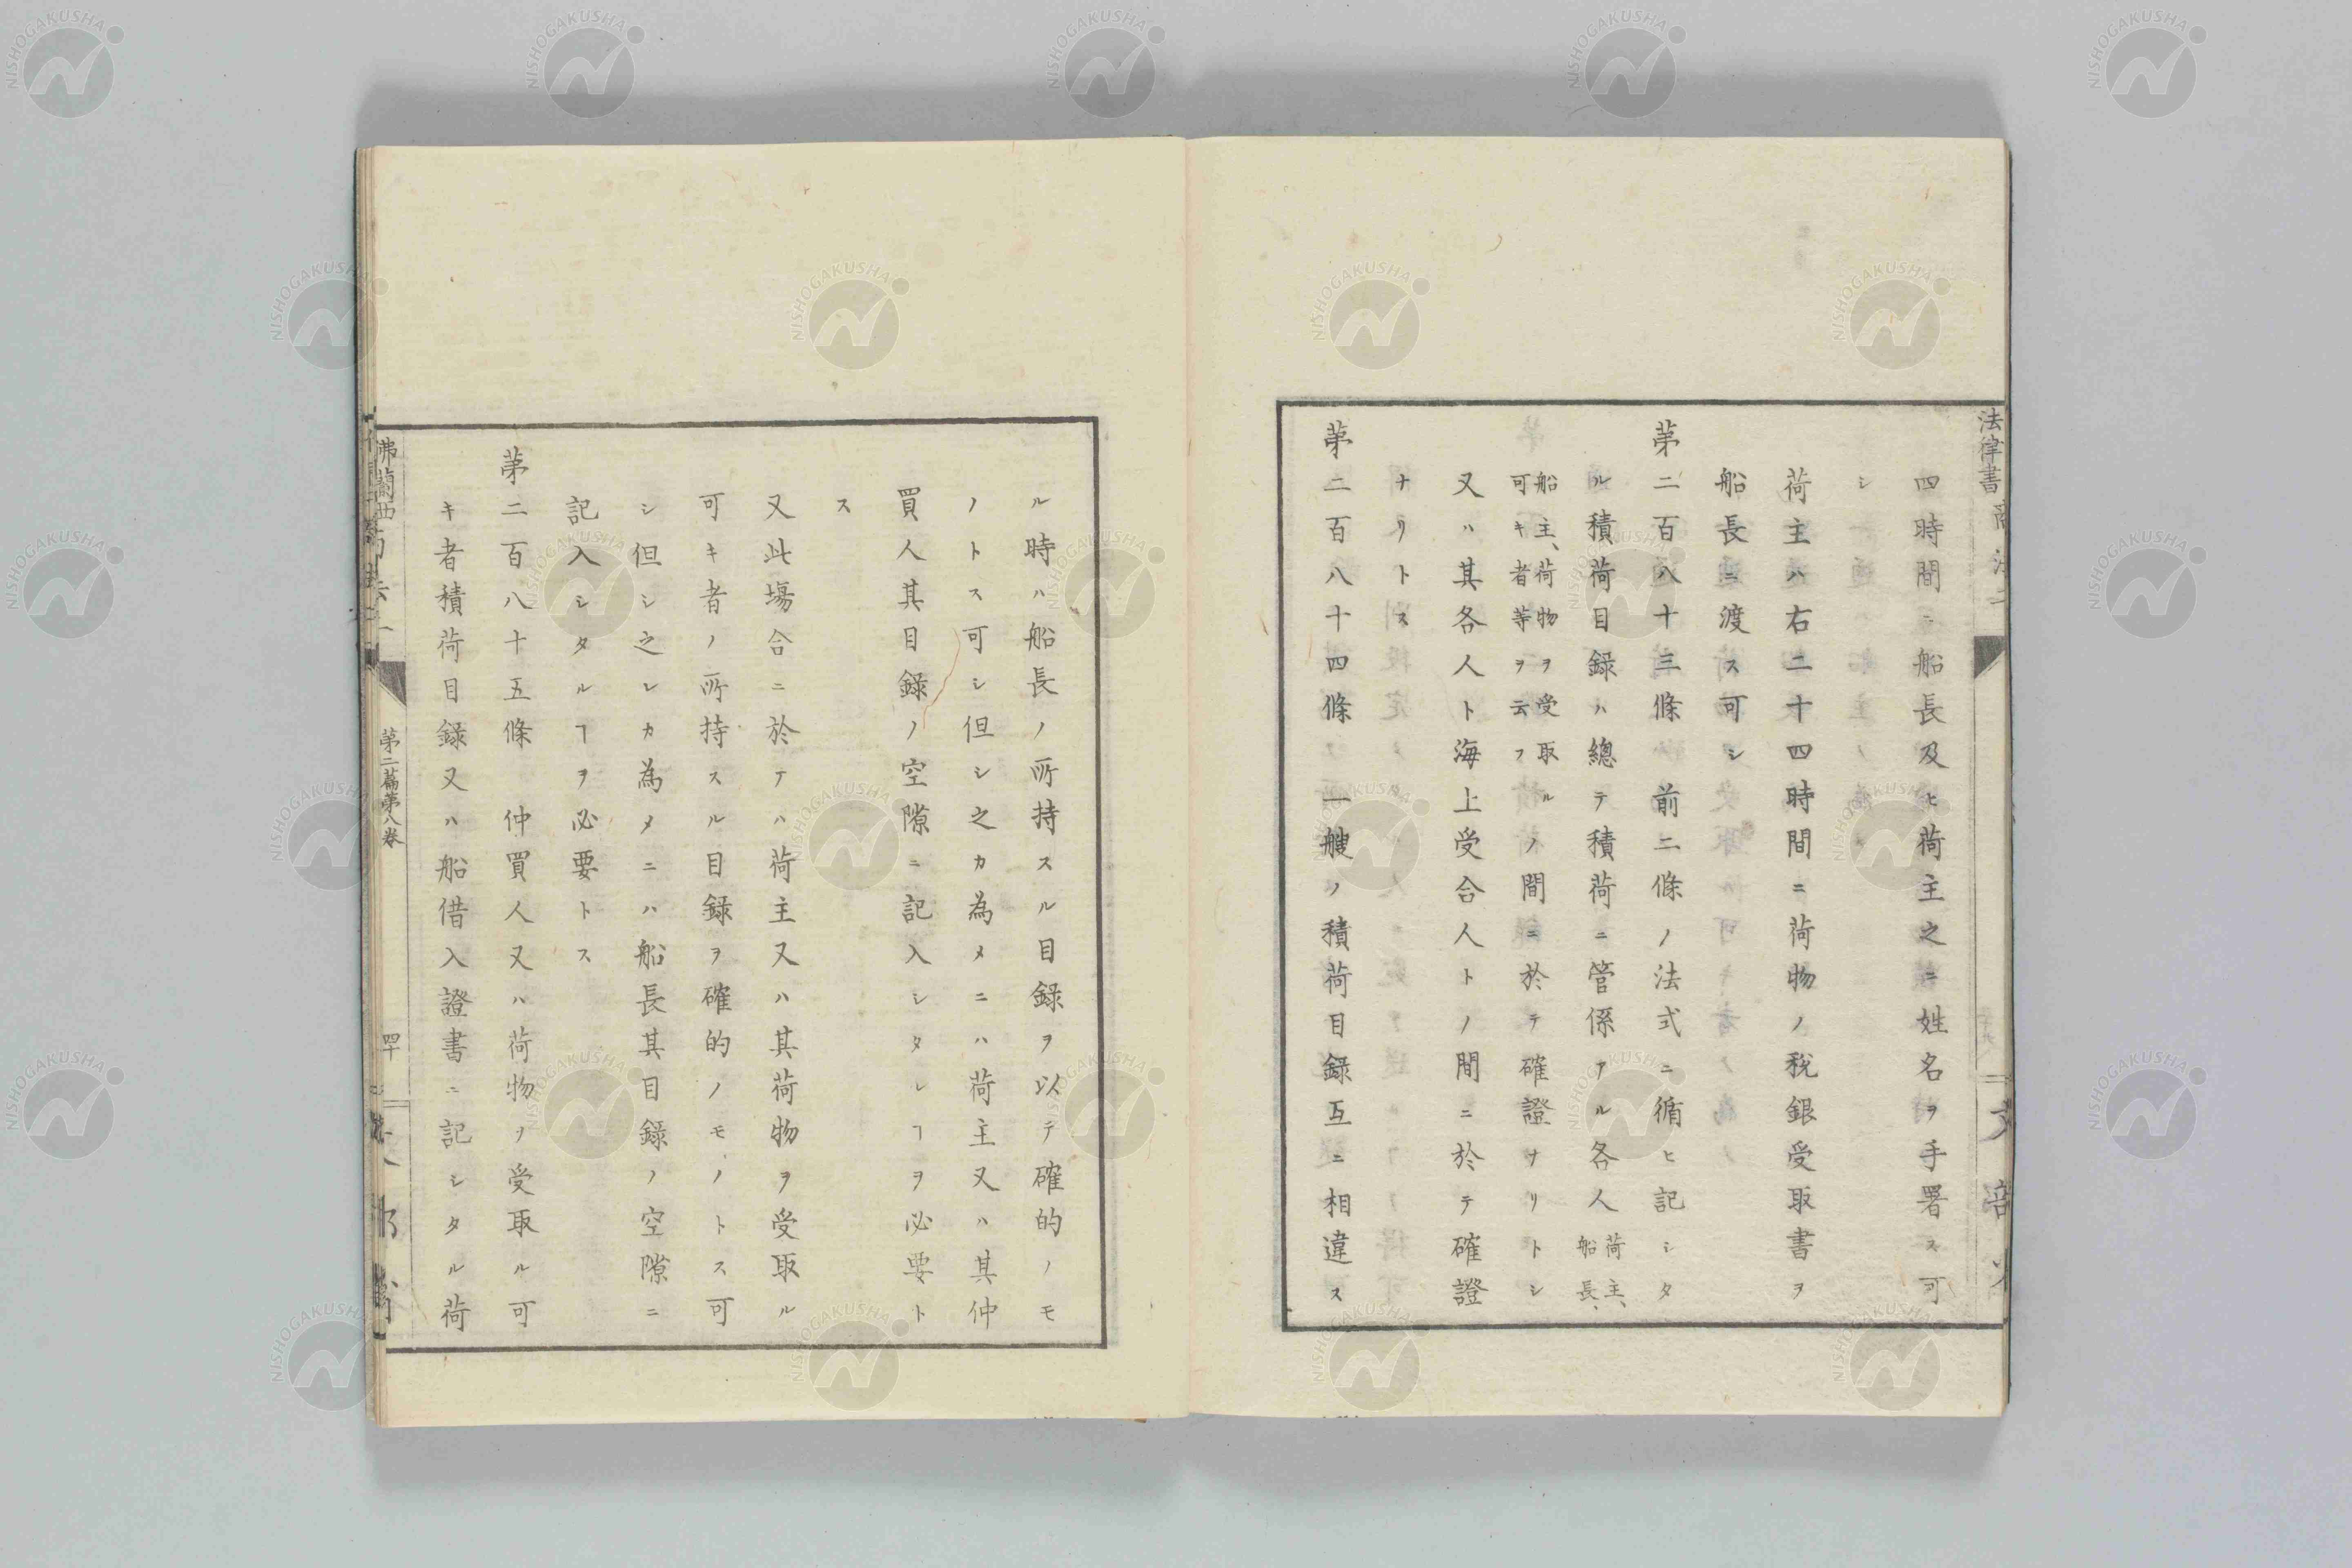 四時間ニ船長及ヒ荷主之ニ姓名ヲ手署ス可
シ
荷主ハ右二十四時間ニ荷物ノ稅銀受取書ヲ
船長ニ渡ス可シ
苐二百八十三條 前二條ノ法式ニ循ヒ記シタ
ル積荷目録ハ總テ積荷ニ管係アル各人荷主、船長、
船主、荷物ヲ受取ル可キ者等ヲ云フノ間ニ於テ確證ナリトシ
又ハ其各人ト海上受合人トノ間ニ於テ確證
ナリトス
苐二百八十四條 一艘ノ積荷目録互ニ相違ス
ル時ハ船長ノ所持スル目録ヲ以テ確的ノモ
ノトス可シ但シ之カ為メニハ荷主又ハ其仲
買人其目録ノ空隙ニ記入シタレヿヲ必要ト
ス
又此場合ニ於テハ荷主又ハ其荷物ヲ受取ル
可キ者ノ所持スル目録ヲ確的ノモノトス可
シ但シ之レカ為メニハ船長其目録ノ空隙ニ
記入シタルヿヲ必要トス
苐二百八十五條 仲買人又ハ荷物ヲ受取ル可
キ者積荷目録又ハ船借入證書ニ記シタル荷
佛蘭西
苐二篇苐八巻
法律書
NISHOGAKUSHA